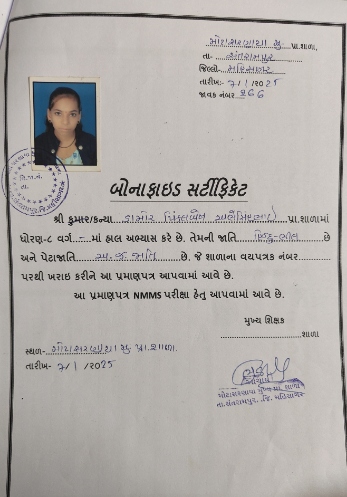 મોટાસરણાયા મુ. પ્રા.શાળા,
તા- સંતરામપુર
જિલ્લો- મહિસાગર
તારીખ:- 7/1/2025
જાવક નંબર 266
બોનાફાઇડ સર્ટીફિકેટ
શ્રી કુમાર/કન્યા ડામોર પ્રા.શાળામાં
ધોરણ-૮ વર્ગ - માં હાલ અભ્યાસ કરે છે. તેમની જાતિ હિન્દુ-ભીલ છે
અને પેટાજાતિ અ.જ.જાતિ છે. જે શાળાના વયપત્રક નંબર
પરથી ખરાઇ કરીને આ પ્રમાણપત્ર આપવામાં આવે છે.
આ પ્રમાણપત્ર NMMS પરીક્ષા હેતુ આપવામાં આવે છે.
મુખ્ય શિક્ષક
શાળા
સ્થળ- મોટાસરણાયા મુ. પ્રા.શાળા.
તારીખ- 7/1/2025
આચાર્ય
મોટાસરણાયા મુખ્ય પ્રા. શાળા
તા.સંતરામપુર, જિ. મહિસાગર